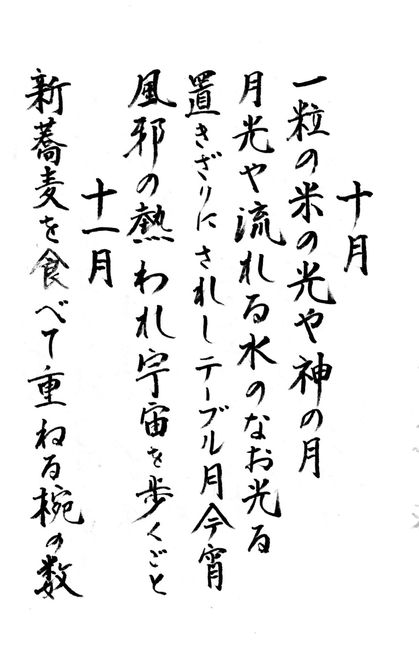 十月
一粒の米の光や神の月
月光や流れる水のなお光る
置きざりにされしテーブル月今宵
風邪の熱われ宇宙を歩くごと
十一月
新蕎麦を食べて重ねる椀の数